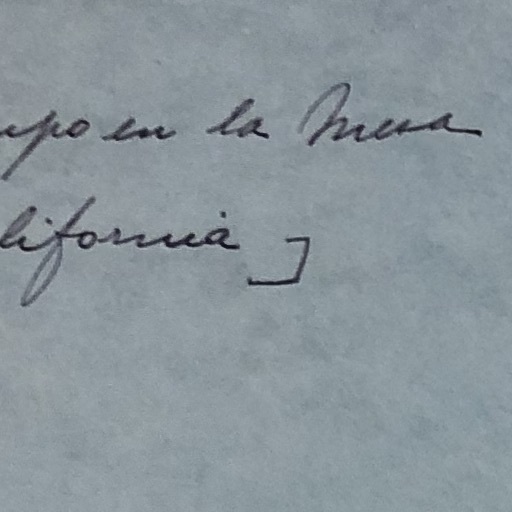 upo en la Mesa
lifornia ]